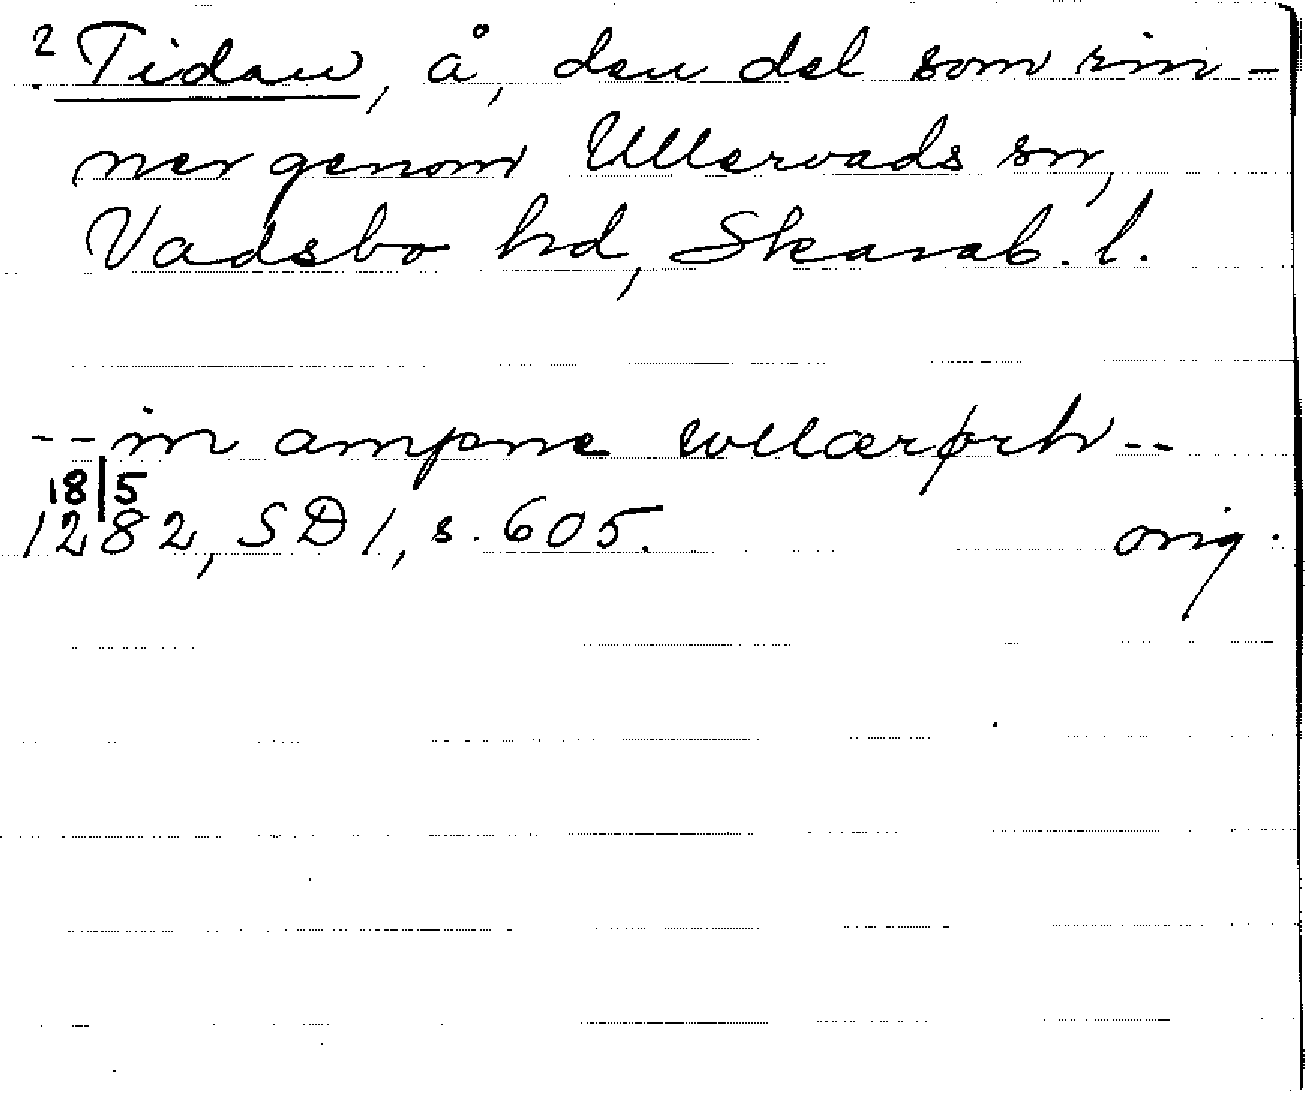 ? Tidan, å, den del som rin-
ner genom Ullervads sn,
Vadsbo hd, Skarab. l.
-- in ampne wllærørth --
18/5
1282, SD 1, s. 605. orig.